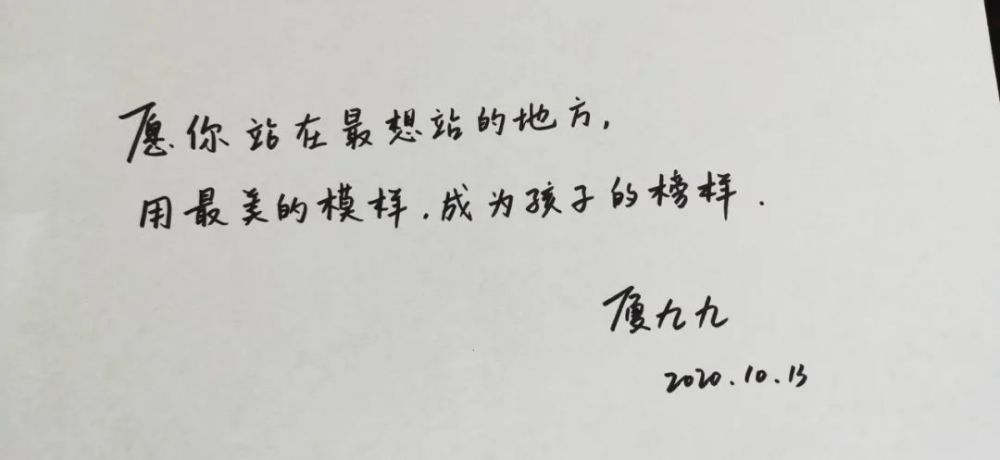 愿你站在最想站的地方,
用最美的模样,成为孩子的榜样.
厦九九
2020.10.13